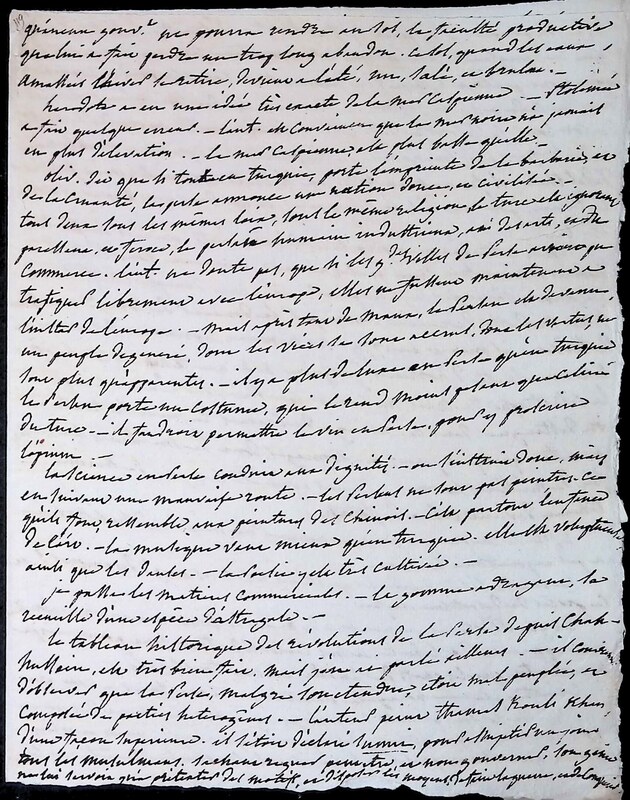 qu'aucun gouv.t ne pourra rendre au sol, la faculté productive
que lui a fait perdre un trop long abandon. Ce sol, quand les eaux
amassées l'hiver se retire, devient à l'été, nu, salé, et brulant. —
herodote a eu une idée très exacte de la mer Caspienne — Ptolémée
a fait quelques erreurs. — l'aut. est convaincu que la mer noire n'a jamais
eu plus d'élévation. — la mer Caspienne est plus basse qu'elle —
oliv. dit que si tout en turquie, porte l'empreinte de la barbarie, et
de la cruauté, la perse annonce une nation douce, et civilisée. —
tout deux sous les mêmes loix, sous la même religion, le turc est ignorant
paresseux, et féroce, le persan humain industrieux, ami des arts, et du
commerce. l'aut. ne doute pas, que si les g.des villes de Perse avoient pu
trafiquer librement avec l'europe, elles ne fussent maintenant
de l'europe. — Mais après tant de maux, le Persan est devenu
un peuple dégénéré, dont les vices se sont accrus, dont les vertus ne
sont plus qu'apparentes. — il y a plus de luxe en Perse qu'en turquie
le Persan porte un costume, qui le rend moins que celui
du turc. — il faudroit permettre le vin en Perse, pour y proscrire
l'opium. —
la science en Perse conduit aux dignités. — on l'étudie donc, mais
en suivant une mauvaise route. — les Persans ne sont pas peintres. Ce
qu'ils font, ressemble aux peintures des Chinois. — Cela partout l'enfance
de l'art. — la musique vaut mieux qu'en turquie. elle est voluptueuse
ainsi que les danses. — la Poésie y est très cultivée. —
je passe les matières commerciales. — la gomme adragant, se
recueille d'une espèce d'astragale. —
le tableau historique des révolutions de la Perse depuis Chah-
hussein, est très bien fait, mais j'en ai parlé ailleurs. — il convient
d'observer que la Perse, malgré son étendue, étoit mal peuplée, et
composée de parties hétérogènes. — l'auteur peint thamas Kouli Khan
d'une façon supérieure. il s'étoit déclaré sunni, pour
tous les musulmans. sachant et non gouverner, son génie
ne lui servoit qu'à des motifs, et disposer les moyens, de faire la guerre, et de